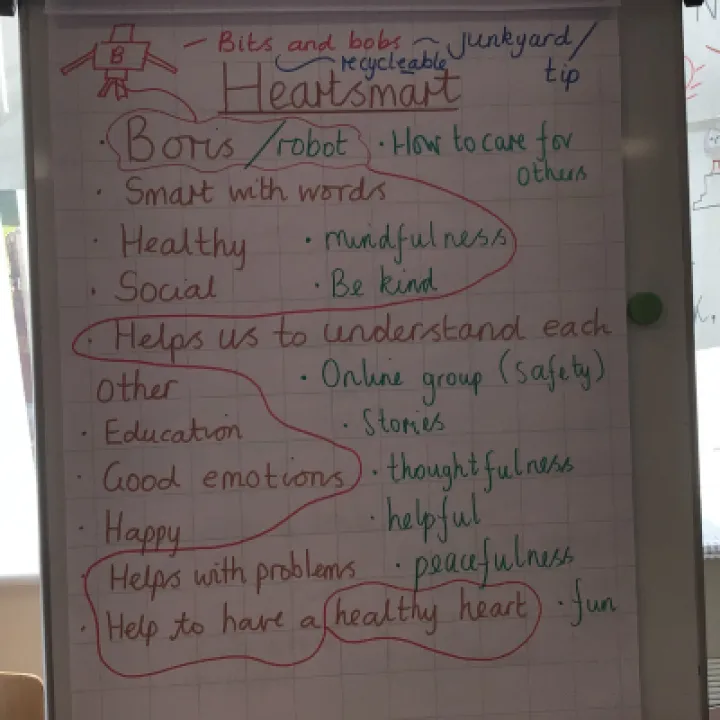 B - Bits and bobs ~ junkyard/
recycleable tip
Heartsmart
· Boris /robot · How to care for
others
· Smart with words
· Healthy · mindfulness
· Social · Be kind
· Helps us to understand each
other · Online group (safety)
· Education · Stories
· Good emotions · thoughtfulness
· Happy · helpful
· Helps with problems · peacefulness
· Help to have a healthy heart · fun